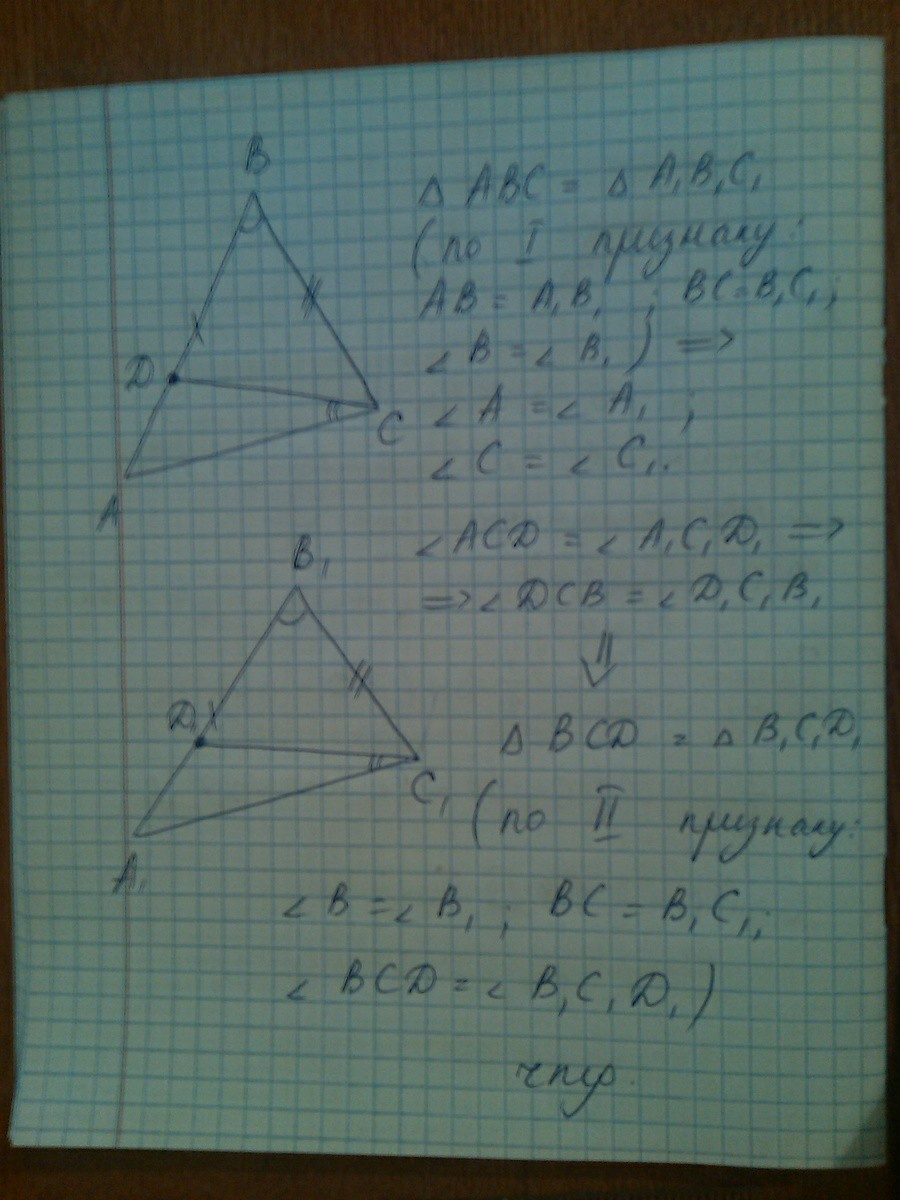 B
D
C
A
Δ ABC = Δ A₁B₁C₁
(по I признаку:
AB = A₁B₁ ; BC = B₁C₁;
∠ B = ∠ B₁) =>
∠ A = ∠ A₁ ;
∠ C = ∠ C₁.
∠ ACD = ∠ A₁C₁D₁ =>
=> ∠ DCB = ∠ D₁C₁B₁
⇓
B₁
D₁
C₁
A₁
Δ BCD = Δ B₁C₁D₁
(по II признаку:
∠ B = ∠ B₁ ; BC = B₁C₁;
∠ BCD = ∠ B₁C₁D₁)
чтд.